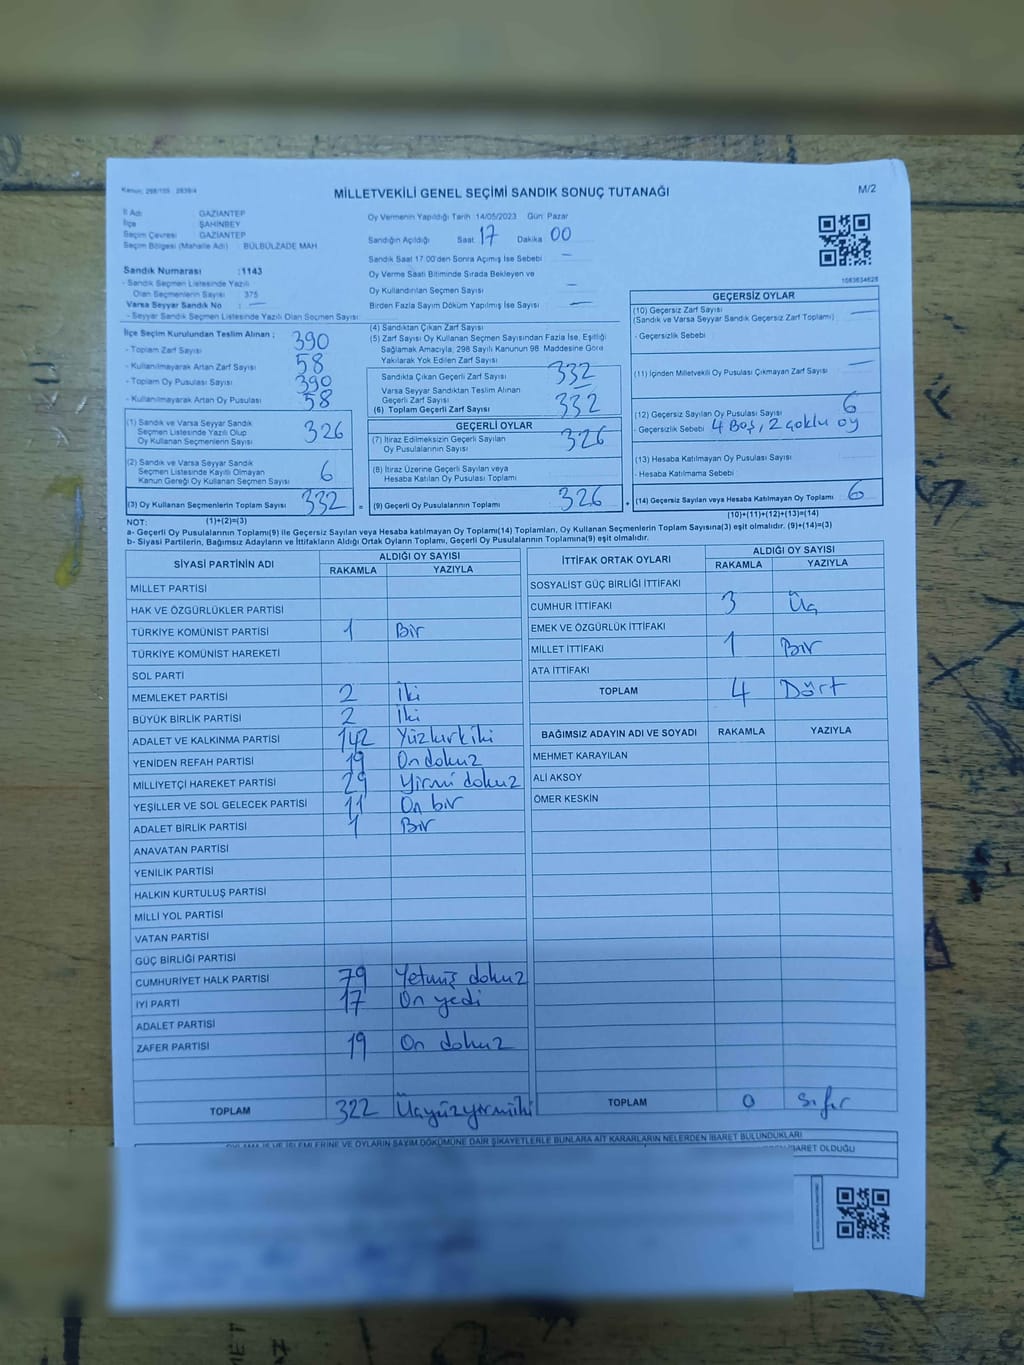 Kanun: 298/105 2839/4
MİLLETVEKİLİ GENEL SEÇİMİ SANDIK SONUÇ TUTANAĞI
M/2
İl Adı GAZİANTEP
İlçe ŞAHİNBEY
Seçim Çevresi GAZİANTEP
Seçim Bölgesi (Mahalle Adı) : BÜLBÜLZADE MAH.
Sandık Numarası :1143
- Sandık Seçmen Listesinde Yazılı
Olan Seçmenlerin Sayısı 375
Varsa Seyyar Sandık No : —
- Seyyar Sandık Seçmen Listesinde Yazılı Olan Seçmen Sayısı
Oy Vermenin Yapıldığı Tarih 14/05/2023 Gün Pazar
Sandığın Açıldığı Saat 17 Dakika 00
Sandık Saat 17 00'den Sonra Açılmış İse Sebebi —
Oy Verme Saati Bitiminde Sırada Bekleyen ve
Oy Kullandırılan Seçmen Sayısı —
Birden Fazla Sayım Döküm Yapılmış İse Sayısı —
1083634628
İlçe Seçim Kurulundan Teslim Alınan ;
- Toplam Zarf Sayısı 390
- Kullanılmayarak Artan Zarf Sayısı 58
- Toplam Oy Pusulası Sayısı 390
- Kullanılmayarak Artan Oy Pusulası 58
(1) Sandık ve Varsa Seyyar Sandık
Seçmen Listesinde Yazılı Olup
Oy Kullanan Seçmenlerin Sayısı 326
(2) Sandık ve Varsa Seyyar Sandık
Seçmen Listesinde Kayıtlı Olmayan
Kanun Gereği Oy Kullanan Seçmen Sayısı 6
(3) Oy Kullanan Seçmenlerin Toplam Sayısı 332
(4) Sandıktan Çıkan Zarf Sayısı
(5) Zarf Sayısı Oy Kullanan Seçmen Sayısından Fazla İse, Eşitliği
Sağlamak Amacıyla, 298 Sayılı Kanunun 98. Maddesine Göre
Yakılarak Yok Edilen Zarf Sayısı
Sandıkta Çıkan Geçerli Zarf Sayısı 332
Varsa Seyyar Sandıktan Teslim Alınan
Geçerli Zarf Sayısı
(6) Toplam Geçerli Zarf Sayısı 332
GEÇERLİ OYLAR
(7) İtiraz Edilmeksizin Geçerli Sayılan
Oy Pusulalarının Sayısı 326
(8) İtiraz Üzerine Geçerli Sayılan veya
Hesaba Katılan Oy Pusulası Toplamı
= (9) Geçerli Oy Pusulalarının Toplamı 326
GEÇERSİZ OYLAR
(10) Geçersiz Zarf Sayısı
(Sandık ve Varsa Seyyar Sandık Geçersiz Zarf Toplamı) —
- Geçersizlik Sebebi
(11) İçinden Milletvekili Oy Pusulası Çıkmayan Zarf Sayısı —
(12) Geçersiz Sayılan Oy Pusulası Sayısı 6
- Geçersizlik Sebebi 4 Boş, 2 çoklu oy
(13) Hesaba Katılmayan Oy Pusulası Sayısı
- Hesaba Katılmama Sebebi
+ (14) Geçersiz Sayılan veya Hesaba Katılmayan Oy Toplamı 6
NOT: (1)+(2)=(3) (10)+(11)+(12)+(13)=(14)
a- Geçerli Oy Pusulalarının Toplamı(9) ile Geçersiz Sayılan veya Hesaba katılmayan Oy Toplamı(14) Toplamları, Oy Kullanan Seçmenlerin Toplam Sayısına(3) eşit olmalıdır. (9)+(14)=(3)
b- Siyasi Partilerin, Bağımsız Adayların ve İttifakların Aldığı Ortak Oyların Toplamı, Geçerli Oy Pusulalarının Toplamına(9) eşit olmalıdır.
SİYASİ PARTİNİN ADI ALDIĞI OY SAYISI
RAKAMLA YAZIYLA
MİLLET PARTİSİ
HAK VE ÖZGÜRLÜKLER PARTİSİ
TÜRKİYE KOMÜNİST PARTİSİ 1 Bir
TÜRKİYE KOMÜNİST HAREKETİ
SOL PARTİ
MEMLEKET PARTİSİ 2 İki
BÜYÜK BİRLİK PARTİSİ 2 İki
ADALET VE KALKINMA PARTİSİ 142 Yüzkırkiki
YENİDEN REFAH PARTİSİ 19 Ondokuz
MİLLİYETÇİ HAREKET PARTİSİ 29 Yirmi dokuz
YEŞİLLER VE SOL GELECEK PARTİSİ 11 On bir
ADALET BİRLİK PARTİSİ 1 Bir
ANAVATAN PARTİSİ
YENİLİK PARTİSİ
HALKIN KURTULUŞ PARTİSİ
MİLLİ YOL PARTİSİ
VATAN PARTİSİ
GÜÇ BİRLİĞİ PARTİSİ
CUMHURİYET HALK PARTİSİ 79 Yetmiş dokuz
İYİ PARTİ 17 On yedi
ADALET PARTİSİ
ZAFER PARTİSİ 19 On dokuz
TOPLAM 322 Üçyüzyirmiiki
İTTİFAK ORTAK OYLARI ALDIĞI OY SAYISI
RAKAMLA YAZIYLA
SOSYALİST GÜÇ BİRLİĞİ İTTİFAKI
CUMHUR İTTİFAKI 3 Üç
EMEK VE ÖZGÜRLÜK İTTİFAKI
MİLLET İTTİFAKI 1 Bir
ATA İTTİFAKI
TOPLAM 4 Dört
BAĞIMSIZ ADAYIN ADI VE SOYADI RAKAMLA YAZIYLA
MEHMET KARAYILAN
ALİ AKSOY
ÖMER KESKİN
TOPLAM 0 Sıfır
OYLAMA İŞ VE İŞLEMLERİNE VE OYLARIN SAYIM DÖKÜMÜNE DAİR ŞİKAYETLERLE BUNLARA AİT KARARLARIN NELERDEN İBARET BULUNDUKLARI
İBARET OLDUĞU